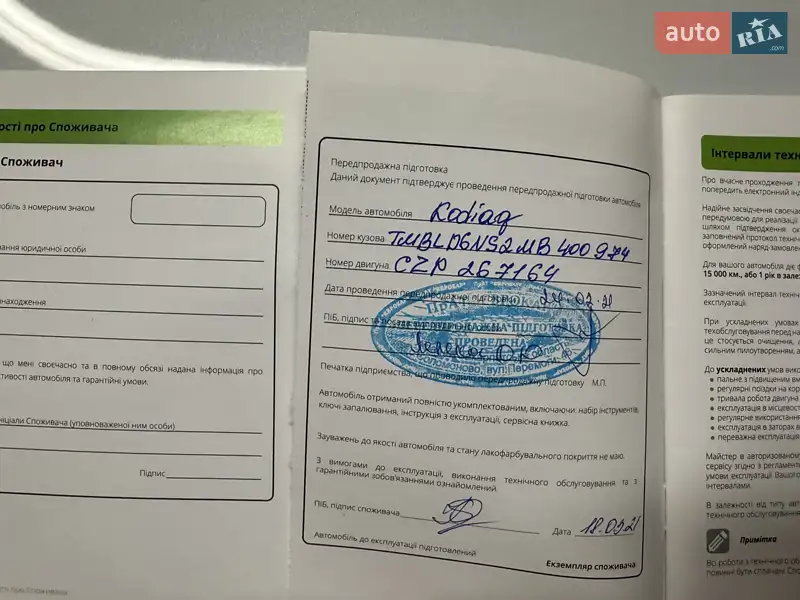 auto RIA .com
ості про Споживача
Споживач
мобіль з номерним знаком
вання юридичної особи
знаходження
що мені своєчасно та в повному обсязі надана інформація про
стивості автомобіля та гарантійні умови.
ініціали Споживача (уповноваженої ним особи)
Підпис
Передпродажна підготовка
Даний документ підтверджує проведення передпродажної підготовки автомобіля
Модель автомобіля Kodiaq
Номер кузова TMBLD6NS2MB400974
Номер двигуна CZP 267164
Дата проведення передпродажної підготовки
ПІБ, підпис та посада
ПРОВЕДЕНА
Печатка підприємства, що проводило передпродажну підготовку М.П.
Автомобіль отриманий повністю укомплектованим, включаючи: набір інструментів,
ключі запалювання, інструкція з експлуатації, сервісна книжка.
Зауважень до якості автомобіля та стану лакофарбувального покриття не маю.
З вимогами до експлуатації, виконання технічного обслуговування та з
гарантійними зобов'язаннями ознайомлений.
ПІБ, підпис споживача
Дата 18.03.21
Автомобіль до експлуатації підготовлений
Екземпляр споживача
Інтервали техн
Про вчасне проходження
попередить електронний інд
Надійне засвідчення своєча
передумовою для реалізації
шляхом підтвердження ок
заповнений протокол техніч
оформлений наряд-замовлен
Для вашого автомобіля діє
15 000 км., або 1 рік в зале
Зазначений інтервал техніч
експлуатації.
При ускладнених умовах
техобслуговування перед на
це стосується очищення,
сильним пилоутворенням,
До ускладнених умов вико
• пальне з підвищеним вм
• регулярні поїздки на кор
• тривала робота двигуна
• експлуатація в місцевост
• регулярне використання
• експлуатація в заторах
• переважна експлуатація
Майстер в авторизованому
сервісу згідно з регламенто
умови експлуатації Вашого
інтервалами.
В залежності від типу авто
технічного обслуговування
Примітка
Всі роботи з технічного об
повинні бути сплачені Спо